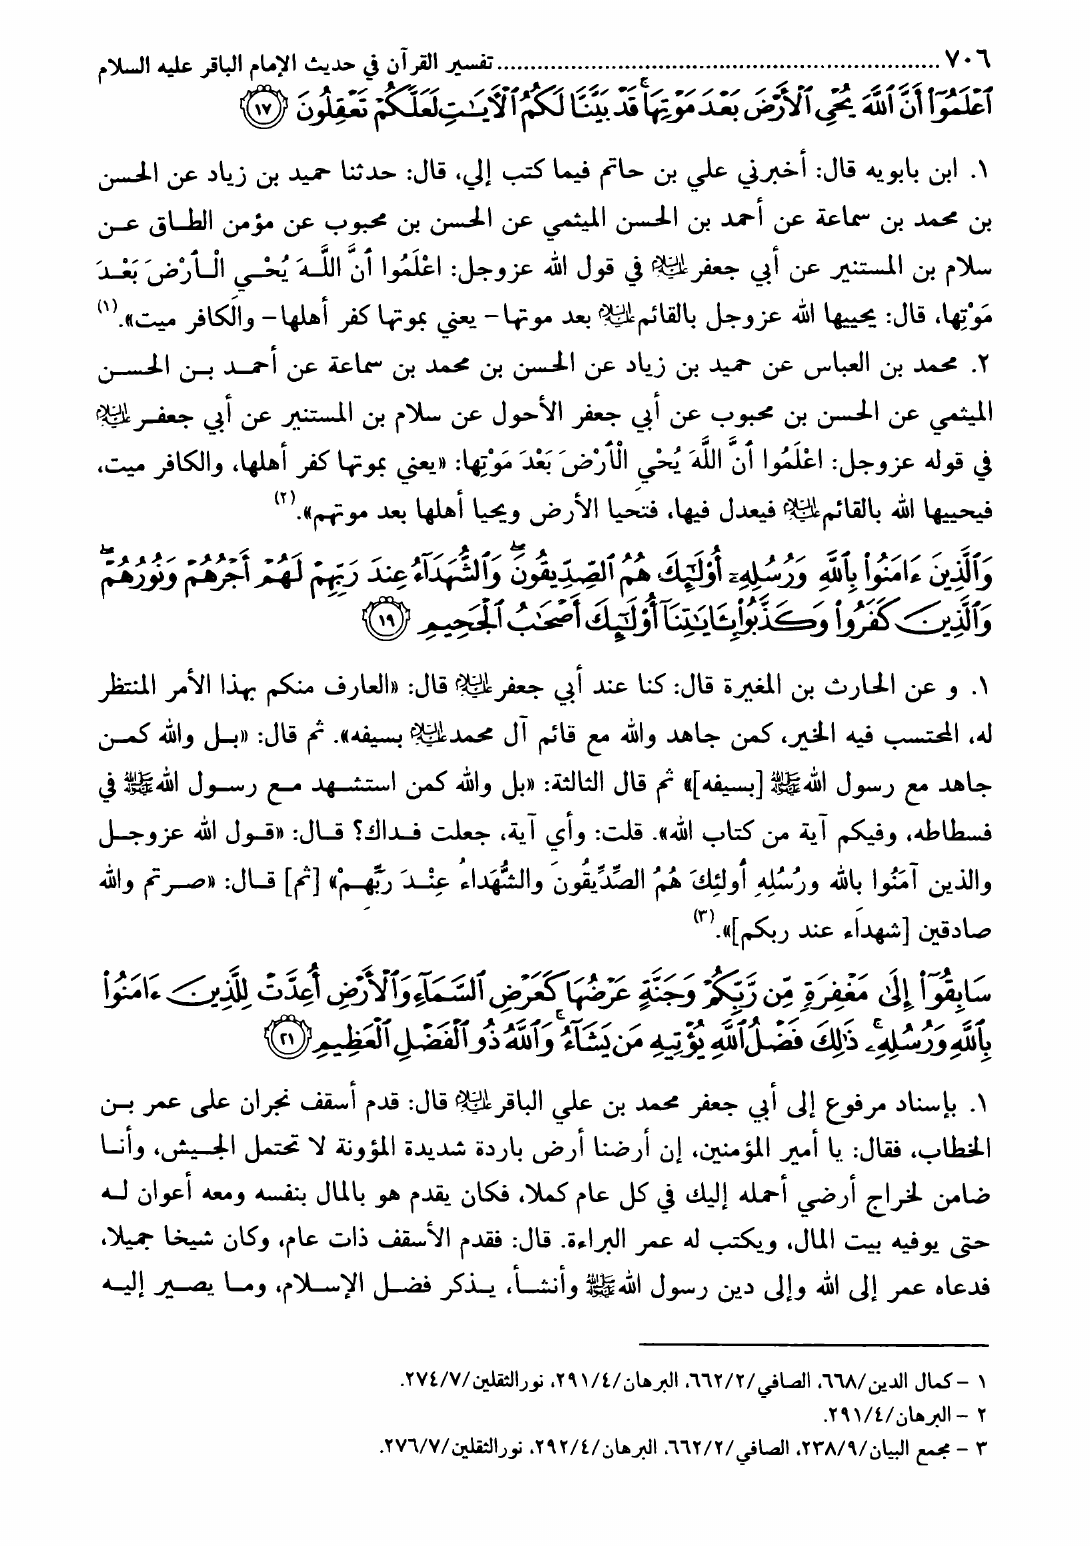 ٧٠٦ ................................................................ تفسير القرآن في حديث الإمام الباقر عليه السلام
ٱعْلَمُوٓا۟ أَنَّ ٱللَّهَ يُحْىِ ٱلْأَرْضَ بَعْدَ مَوْتِهَا ۚ قَدْ بَيَّنَّا لَكُمُ ٱلْءَايَـٰتِ لَعَلَّكُمْ تَعْقِلُونَ ﴿١٧﴾
١. ابن بابويه قال: أخبرني علي بن حاتم فيما كتب إلي، قال: حدثنا حميد بن زياد عن الحسن
بن محمد بن سماعة عن أحمد بن الحسن الميثمي عن الحسن بن محبوب عن مؤمن الطاق عن
سلام بن المستنير عن أبي جعفر عليه السلام في قول الله عزوجل: اعْلَمُوا أَنَّ اللَّهَ يُحْيِ الْأَرْضَ بَعْدَ
مَوْتِها، قال: يحييها الله عزوجل بالقائم عليه السلام بعد موتها- يعني بموتها كفر أهلها- والكافر ميت».(١)
٢. محمد بن العباس عن حميد بن زياد عن الحسن بن محمد بن سماعة عن أحمد بن الحسن
الميثمي عن الحسن بن محبوب عن أبي جعفر الأحول عن سلام بن المستنير عن أبي جعفر عليه السلام
في قوله عزوجل: اعْلَمُوا أَنَّ اللَّهَ يُحْيِ الْأَرْضَ بَعْدَ مَوْتِها: «يعني بموتها كفر أهلها، والكافر ميت،
فيحييها الله بالقائم عليه السلام فيعدل فيها، فتحيا الأرض ويحيا أهلها بعد موتهم».(٢)
وَٱلَّذِينَ ءَامَنُوا۟ بِٱللَّهِ وَرُسُلِهِۦٓ أُو۟لَـٰٓئِكَ هُمُ ٱلصِّدِّيقُونَ ۖ وَٱلشُّهَدَآءُ عِندَ رَبِّهِمْ لَهُمْ أَجْرُهُمْ وَنُورُهُمْ ۖ
وَٱلَّذِينَ كَفَرُوا۟ وَكَذَّبُوا۟ بِـَٔايَـٰتِنَآ أُو۟لَـٰٓئِكَ أَصْحَـٰبُ ٱلْجَحِيمِ ﴿١٩﴾
١. و عن الحارث بن المغيرة قال: كنا عند أبي جعفر عليه السلام قال: «العارف منكم بهذا الأمر المنتظر
له، المحتسب فيه الخير، كمن جاهد والله مع قائم آل محمد عليه السلام بسيفه». ثم قال: «بل والله كمن
جاهد مع رسول الله ﷺ [بسيفه]» ثم قال الثالثة: «بل والله كمن استشهد مع رسول الله ﷺ في
فسطاطه، وفيكم آية من كتاب الله». قلت: وأي آية، جعلت فداك؟ قال: «قول الله عزوجل
والذين آمَنُوا بالله ورُسُلِهِ أولئِكَ هُمُ الصِّدِّيقُونَ والشُّهَداءُ عِنْدَ رَبِّهِمْ» [ثم] قال: «صرتم والله
صادقين [شهداء عند ربكم]».(٣)
سَابِقُوٓا۟ إِلَىٰ مَغْفِرَةٍ مِّن رَّبِّكُمْ وَجَنَّةٍ عَرْضُهَا كَعَرْضِ ٱلسَّمَآءِ وَٱلْأَرْضِ أُعِدَّتْ لِلَّذِينَ ءَامَنُوا۟
بِٱللَّهِ وَرُسُلِهِۦ ۚ ذَٰلِكَ فَضْلُ ٱللَّهِ يُؤْتِيهِ مَن يَشَآءُ ۚ وَٱللَّهُ ذُو ٱلْفَضْلِ ٱلْعَظِيمِ ﴿٢١﴾
١. بإسناد مرفوع إلى أبي جعفر محمد بن علي الباقر عليه السلام قال: قدم أسقف نجران على عمر بن
الخطاب، فقال: يا أمير المؤمنين، إن أرضنا أرض باردة شديدة المؤونة لا تحتمل الجيش، وأنا
ضامن لخراج أرضي أحمله إليك في كل عام كملا، فكان يقدم هو بالمال بنفسه ومعه أعوان له
حتى يوفيه بيت المال، ويكتب له عمر البراءة. قال: فقدم الأسقف ذات عام، وكان شيخا جميلا،
فدعاه عمر إلى الله وإلى دين رسول الله ﷺ وأنشأ، يذكر فضل الإسلام، وما يصير إليه
١ – كمال الدين/٦٦٨، الصافي/٦٦٢/٢، البرهان/٢٩١/٤، نورالثقلين/٢٧٤/٧.
٢ – البرهان/٢٩١/٤.
٣ – مجمع البيان/٢٣٨/٩، الصافي/٦٦٢/٢، البرهان/٢٩٢/٤، نورالثقلين/٢٧٦/٧.